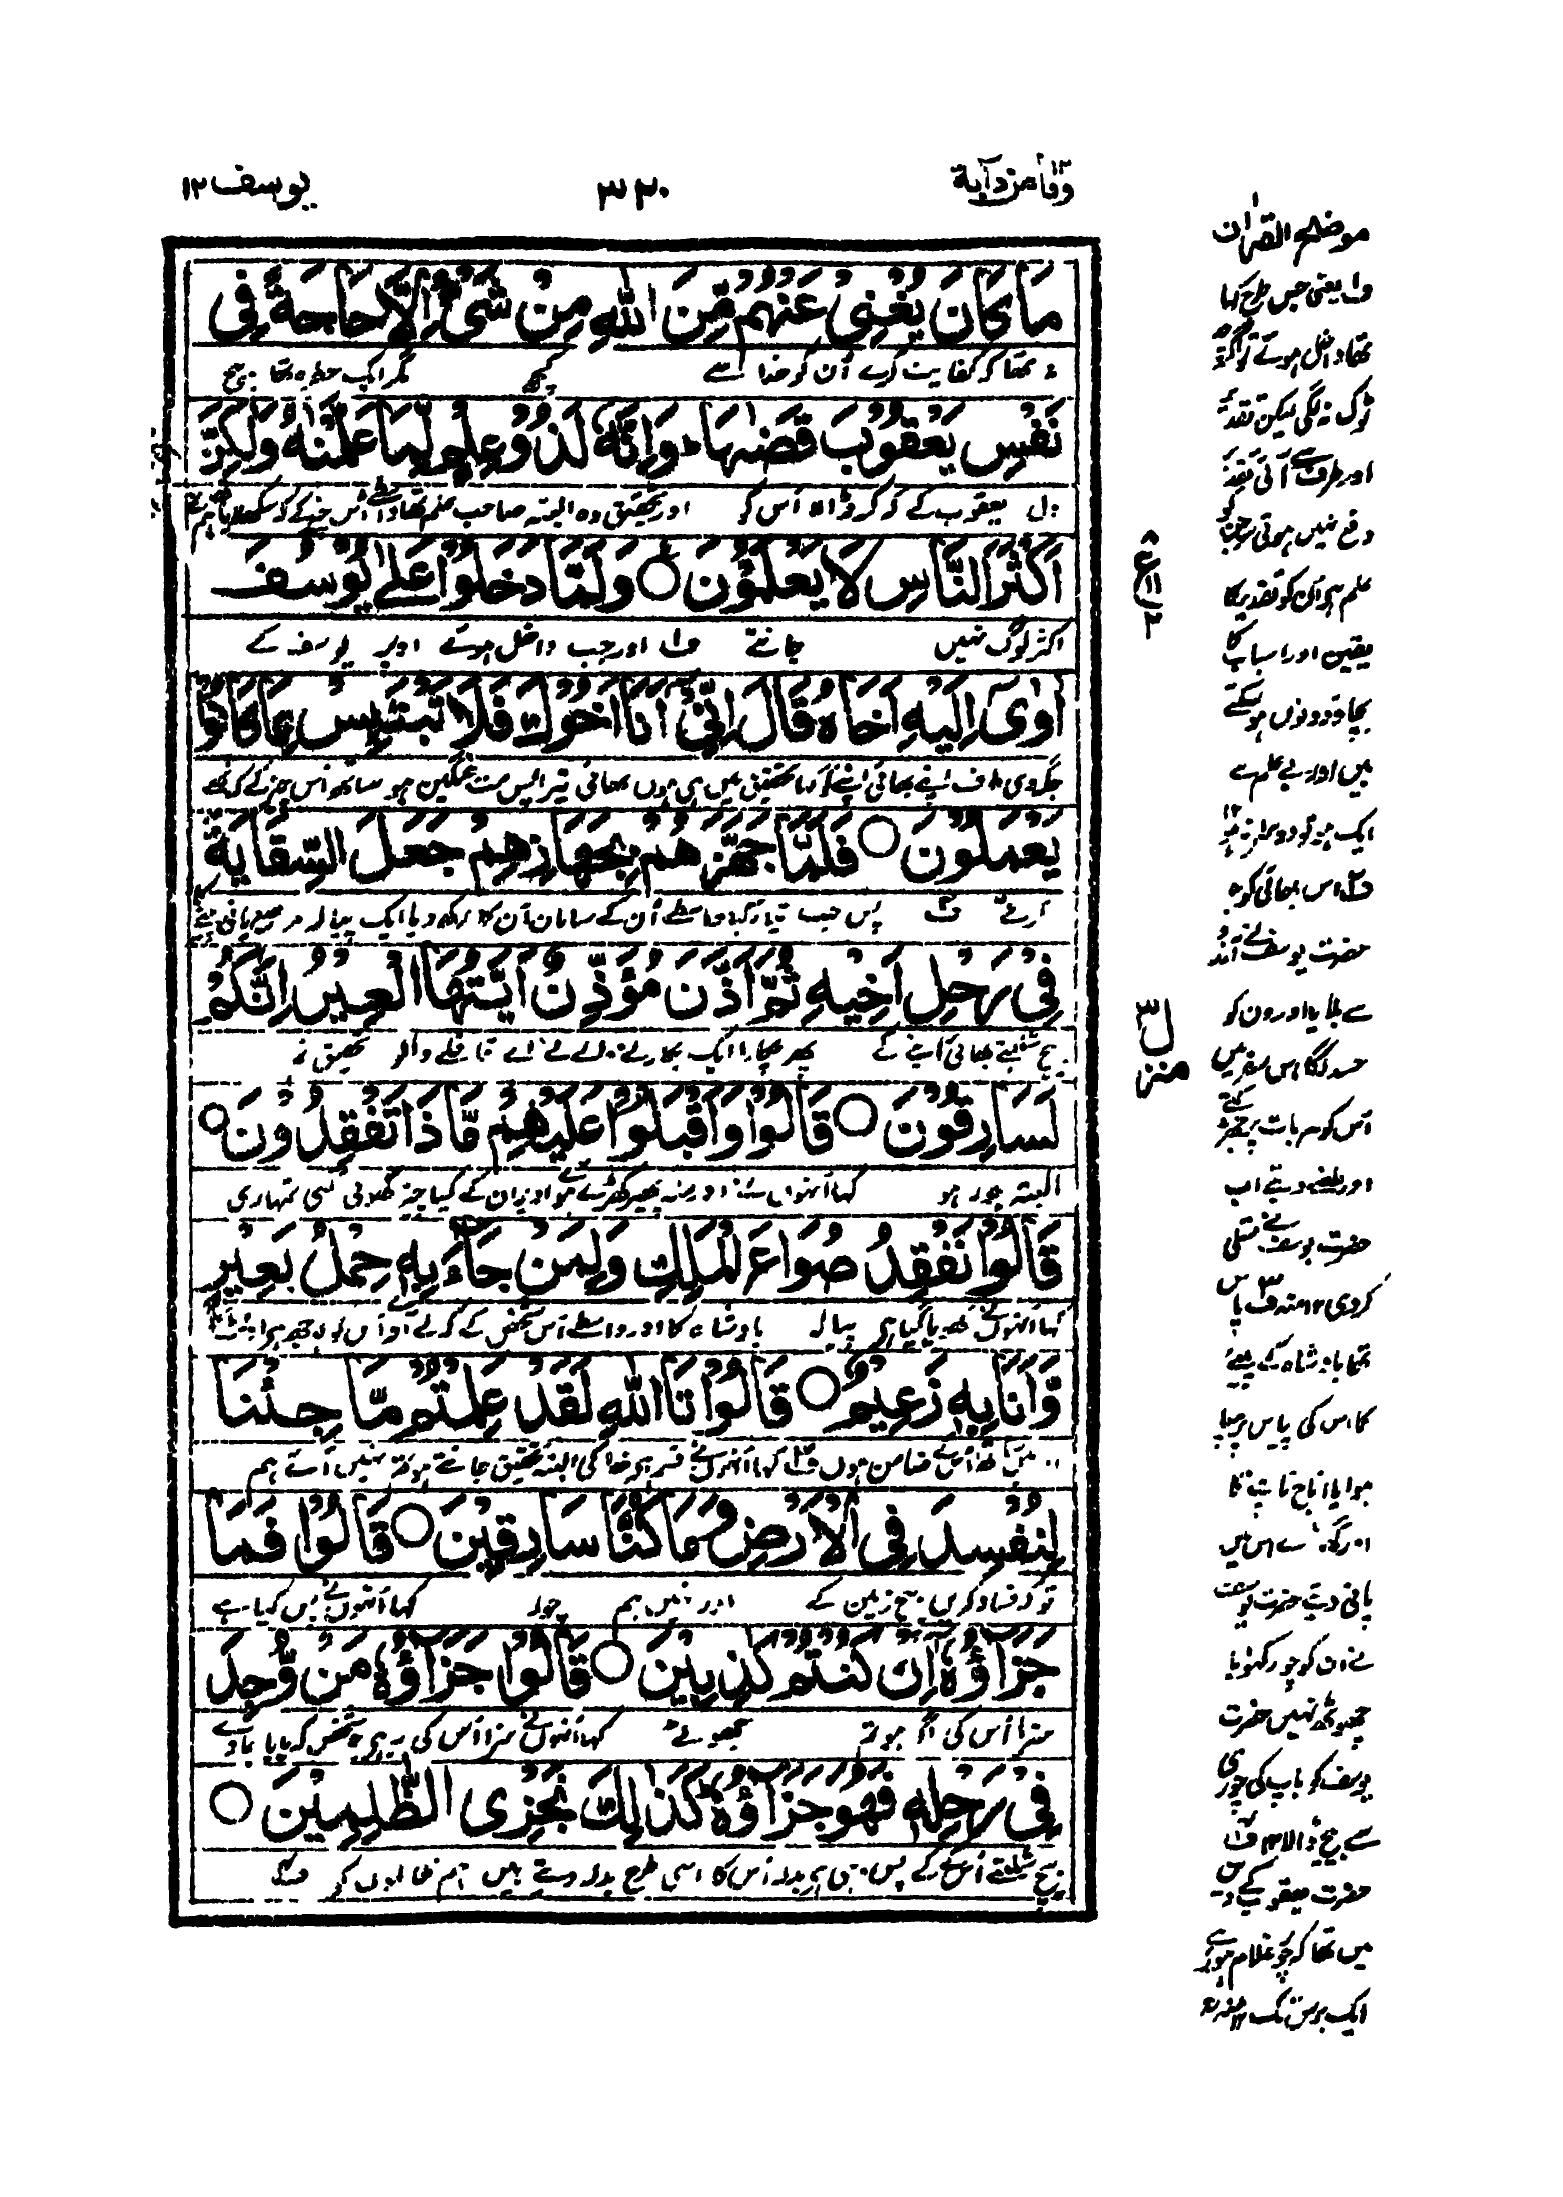 وما من دآبة ١٢
٣٢٠
يوسف ١٢
مَا كَانَ يُغْنِىْ عَنْهُمْ مِّنَ اللّٰهِ مِنْ شَىْءٍ اِلَّا حَاجَةً فِىْ
نہ تھا کہ کفایت کرے اُن کو خدا سے کچھ مگر ایک خطرہ تھا بیچ
نَفْسِ يَعْقُوْبَ قَضٰىهَا ؕ وَاِنَّهٗ لَذُوْ عِلْمٍ لِّمَا عَلَّمْنٰهُ وَلٰكِنَّ
دل یعقوب کے کہ کر ڈالا اُس کو اور تحقیق وہ البتہ صاحب علم تھا واسطے اُس چیز کے کہ سکھلایا ہم نے
اَكْثَرَ النَّاسِ لَا يَعْلَمُوْنَ ○ وَلَمَّا دَخَلُوْا عَلٰى يُوْسُفَ
اکثر لوگ نہیں جانتے ف۱ اور جب داخل ہوئے اوپر یوسف کے
اٰوٰٓى اِلَيْهِ اَخَاهُ قَالَ اِنِّىْٓ اَنَا اَخُوْكَ فَلَا تَبْتَئِسْ بِمَا كَانُوْا
جگہ دی طرف اپنے بھائی اپنے کو کہا تحقیق میں ہی ہوں بھائی تیرا پس مت غمگین ہو ساتھ اُس چیز کے کہ تھے
يَعْمَلُوْنَ ○ فَلَمَّا جَهَّزَهُمْ بِجَهَازِهِمْ جَعَلَ السِّقَايَةَ
کرتے ف۲ پس جب تیار کیا واسطے اُن کے سامان اُن کا رکھ دیا ایک پیالہ
فِىْ رَحْلِ اَخِيْهِ ثُمَّ اَذَّنَ مُؤَذِّنٌ اَيَّتُهَا الْعِيْرُ اِنَّكُمْ
بیچ شلیتے بھائی اپنے کے پھر پکارا ایک پکارنے والے نے اے قافلے والو تحقیق تم
لَسَارِقُوْنَ ○ قَالُوْا وَاَقْبَلُوْا عَلَيْهِمْ مَّاذَا تَفْقِدُوْنَ ○
البتہ چور ہو کہا اُنہوں نے اور منہ پھیر کھڑے ہوئے اوپر اُن کے کیا چیز کھوئی گئی تمہاری
قَالُوْا نَفْقِدُ صُوَاعَ الْمَلِكِ وَلِمَنْ جَآءَ بِهٖ حِمْلُ بَعِيْرٍ
کہا اُنہوں نے کھویا گیا ہی پیالہ بادشاہ کا اور واسطے اُس شخص کے کہ لے آوے اُس کو
وَّاَنَا بِهٖ زَعِيْمٌ ○ قَالُوْا تَاللّٰهِ لَقَدْ عَلِمْتُمْ مَّا جِئْنَا
اور میں ساتھ اُس کے ضامن ہوں ف۳ کہا اُنہوں نے قسم ہی خدا کی البتہ تحقیق جانتے ہو تم نہیں آئے ہم
لِنُفْسِدَ فِى الْاَرْضِ وَمَا كُنَّا سَارِقِيْنَ ○ قَالُوْا فَمَا
تو کہ فساد کریں بیچ زمین کے اور نہیں ہم چور کہا اُنہوں نے پس کیا ہے
جَزَآؤُهٗٓ اِنْ كُنْتُمْ كٰذِبِيْنَ ○ قَالُوْا جَزَآؤُهٗ مَنْ وُّجِدَ
سزا اُس کی اگر ہو تم جھوٹے کہا اُنہوں نے سزا اُس کی یہ ہی جو شخص کہ پایا جاوے
فِىْ رَحْلِهٖ فَهُوَ جَزَآؤُهٗ ؕ كَذٰلِكَ نَجْزِى الظّٰلِمِيْنَ ○
بیچ شلیتے اُس کے کے پس وہی ہی بدلہ اُس کا اسی طرح بدلہ دیتے ہیں ہم ظالموں کو ف۴
ع
منزل ٣
موضح القرآن
ف۱ یعنی جس طرح کہا
تھا داخل ہوئے تو اگرچہ
ٹوک نہ لگی لیکن تقدیر
اور طرف سے آئی تقدیر
دفع نہیں ہوتی سو جن کو
علم ہی اُن کو تقدیر کا
یقین اور اسباب کا
بچاؤ دونوں ہو سکتے
ہیں اور بے علم سے
ایک ہو تو دوسرا نہ ہو ١٢
ف۲ اس بھائی کو جو
حضرت یوسف نے آرزو
سے بلایا اورون کو
حسد لگا اس سفر میں
اُس کو ہر بات پر جھڑکتے
اور طعنے دیتے اب
حضرت یوسف نے تسلی
کر دی ١٢ منہ ف۳ پاس
تھا بادشاہ کے پینے
کا اس کی پیاس پر
ہوا یا اناج ناپنے کا
اس میں
پانی دیتے حضرت یوسف
نے ان کو چور کہوایا
جھوٹھ نہیں حضرت
یوسف کو باپ کی چوری
سے بیچ ڈالا ١٢ ف۴
حضرت یعقوب کے دین
میں تھا کہ چور غلام ہو رہے
ایک برس تک ١٢ منہ